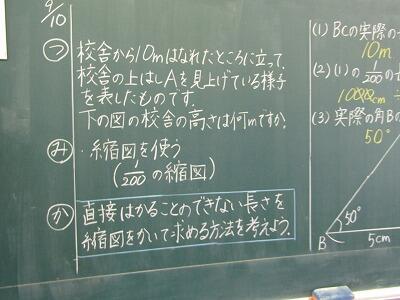 9/10
つ 校舎から10mはなれたところに立って、
校舎の上はしAを見上げている様子
を表したものです。
下の図の校舎の高さは何mですか?
み ・縮図を使う
(1/200の縮図)
か 直接はかることのできない長さを
縮図をかいて求める方法を考えよう。
(1) BCの実際の
10m
(2) (1)の1/200の
1000cm÷
(3) 実際の角Bの
50°
50°
B 5cm